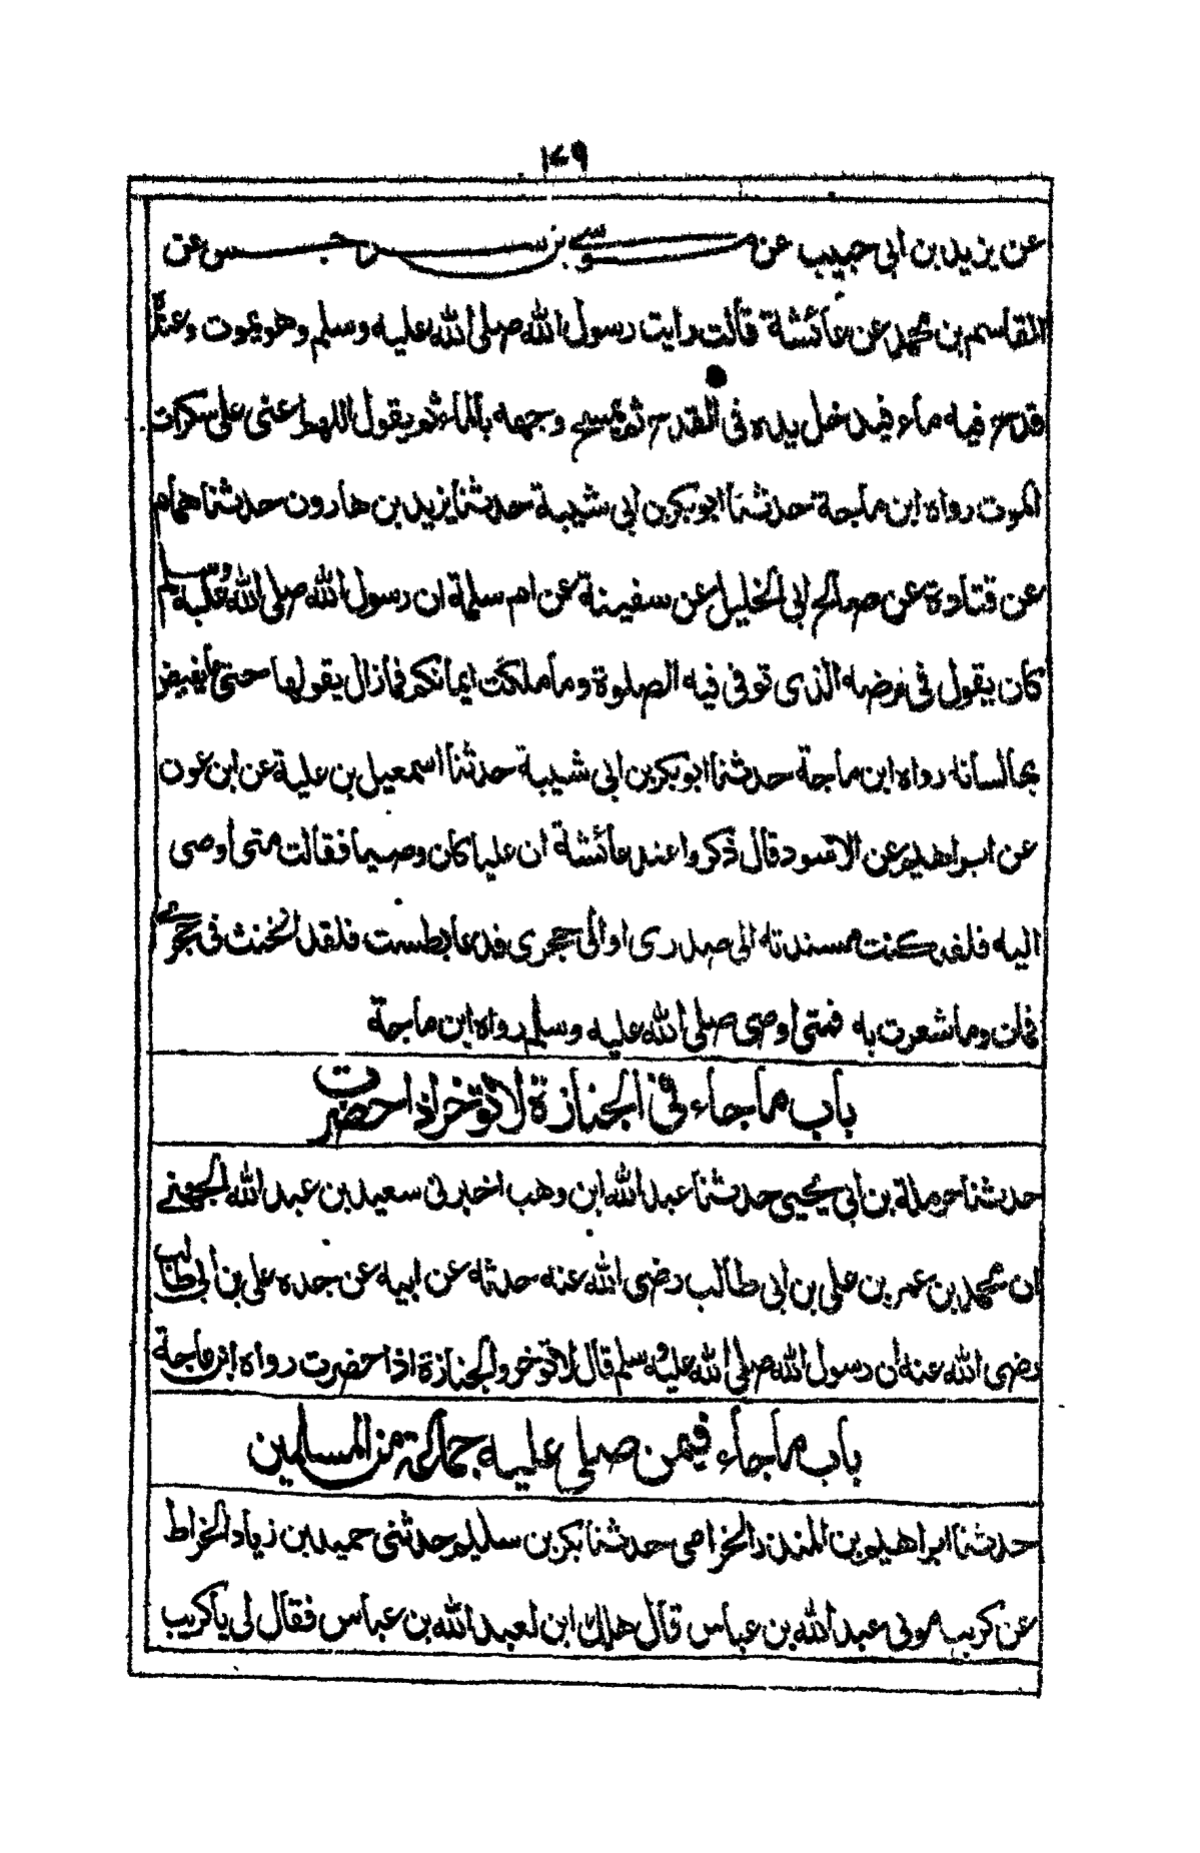 ١٧٩
عن يزيد بن ابى حبيب عن موسى بن سرجس عن
القاسم بن محمد عن عائشة قالت رايت رسول الله صلى الله عليه وسلم وهو يموت وعنده
قدح فيه ماء فيدخل يده فى القدح ثم يمسح وجهه بالماء ثم يقول اللهم اعنى على سكرات
الموت رواه ابن ماجة حدثنا ابو بكر بن ابى شيبة حدثنا يزيد بن هارون حدثنا همام
عن قتادة عن صالح ابى الخليل عن سفينة عن ام سلمة ان رسول الله صلى الله عليه وسلم
كان يقول فى مرضه الذى توفى فيه الصلوة وما ملكت ايمانكم فما زال يقولها حتى ما يفيض
بها لسانه رواه ابن ماجة حدثنا ابو بكر بن ابى شيبة حدثنا اسمعيل بن علية عن ابن عون
عن ابراهيم عن الاسود قال ذكروا عند عائشة ان عليا كان وصيا فقالت متى اوصى
اليه فلقد كنت مسندته الى صدرى او الى حجرى فدعا بطست فلقد انخنث فى حجرى
فمات وما شعرت به فمتى اوصى صلى الله عليه وسلم رواه ابن ماجة
باب ما جاء فى الجنازة لا تؤخر اذا حضرت
حدثنا حرملة بن ابى يحيى حدثنا عبد الله ابن وهب اخبرنى سعيد بن عبد الله الجهنى
ان محمد بن عمر بن على بن ابى طالب رضى الله عنه حدثه عن ابيه عن جده على بن ابى طالب
رضى الله عنه ان رسول الله صلى الله عليه وسلم قال لا تؤخروا الجنازة اذا حضرت رواه ابن ماجة
باب ما جاء فيمن صلى عليه جماعة من المسلمين
حدثنا ابراهيم بن المنذر الخزامى حدثنا بكر بن سليم حدثنى حميد بن زياد الخراط
عن كريب مولى عبد الله بن عباس قال هلك ابن لعبد الله بن عباس فقال لى يا كريب